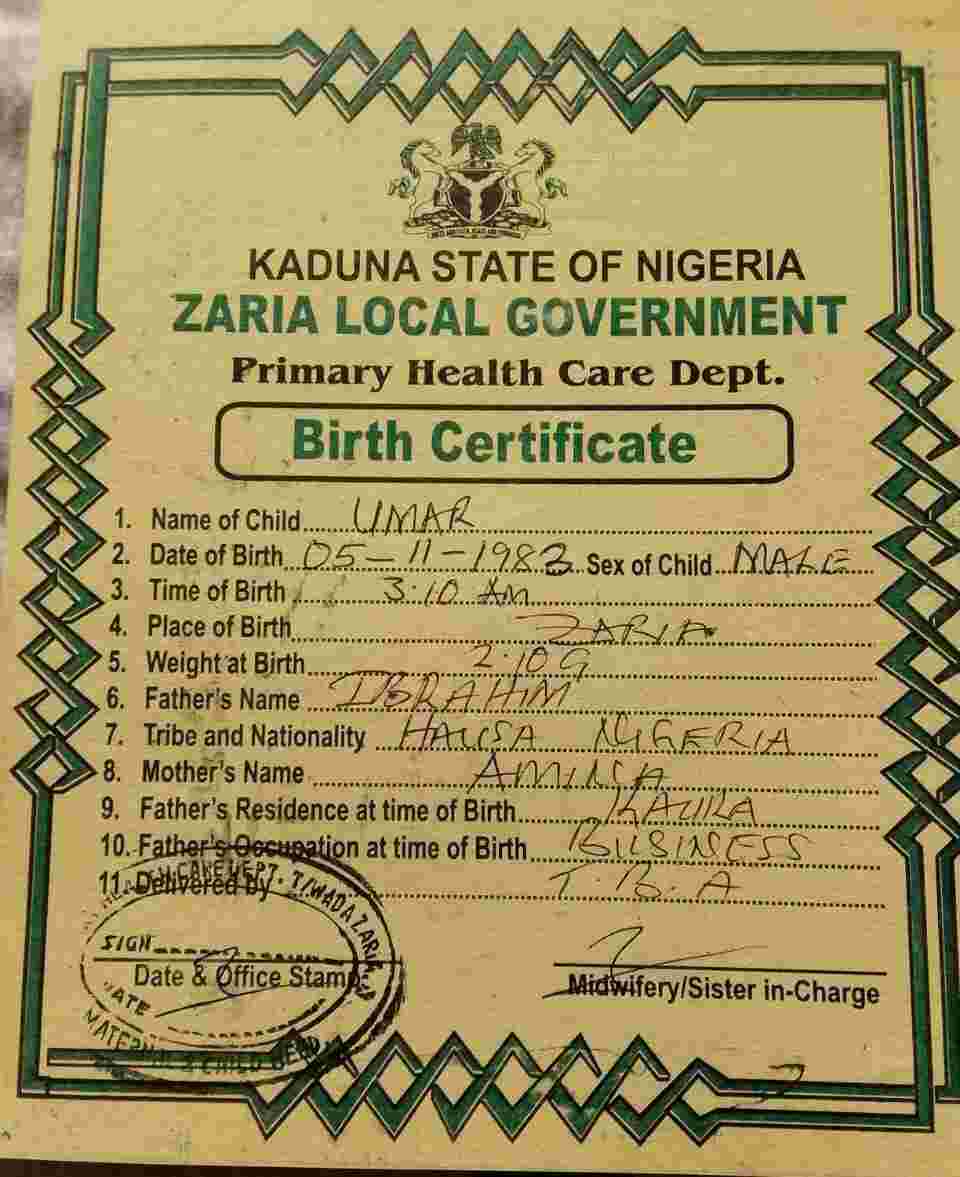 KADUNA STATE OF NIGERIA
ZARIA LOCAL GOVERNMENT
Primary Health Care Dept.
Birth Certificate
1. Name of Child UMAR
2. Date of Birth 05-11-1983 Sex of Child MALE
3. Time of Birth 3:10 AM
4. Place of Birth ZARIA
5. Weight at Birth 2.10G
6. Father's Name IBRAHIM
7. Tribe and Nationality HAUSA NIGERIA
8. Mother's Name AMINA
9. Father's Residence at time of Birth KAURA
10. Father's Occupation at time of Birth BUSINESS
11. Delivered by T.B.A
CARE DEPT. T/WADA ZARIA
SIGN
Date & Office Stamp
DATE
Midwifery/Sister in-Charge